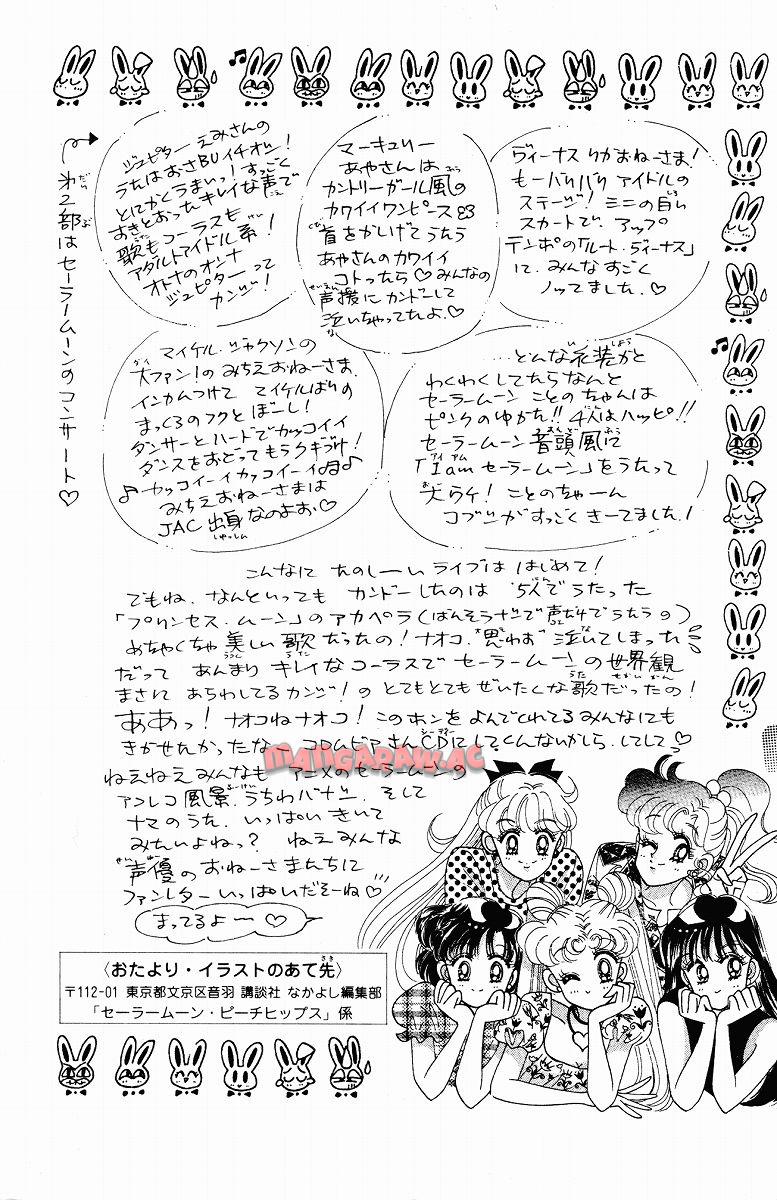 第2部はセーラームーンのコンサート♡
ヴィーナス りかおねーさま!
もーバリバリ アイドルの
ステージ! ミニの白い
スカートで、アップ
テンポの「ルート・ヴィーナス」
に、みんなすごく
ノッてました。♡
マーキュリー
あやさんは
カントリーガール風の
カワイイワンピース
首をかしげてうたう
あやさんのカワイイ
コトったら♡みんなの
声援にカンドーして
泣いちゃってたよ。♡
ジュピター えみさんの
うたはおさBUイチオシ!
とにかくうまいっ!すっごく
すきとおったキレイな声で
歌もコーラスも
アダルトアイドル系!
オトナのオンナ
ジュピターって
カンジ!
……どんな衣装かと
わくわくしてたらなんと
セーラームーン ことのちゃんは
ピンクのゆかた!!4人はハッピ!!
セーラームーン音頭風に
「I am セーラームーン」をうたって
大ウケ! ことのちゃーん
コブシがすっごくきーてました!
マイケル・ジャクソンの
大ファン!のみちえおねーさま、
インカムつけて マイケルばりの
まっくろのフクとぼーし!
ダンサーとハードでカッコイイ
ダンスをおどってもうクギづけ!
♪カッコイーイカッコイーイ♪
みちえおねーさまは
JAC出身なのよお♡
こんなに たのしーいライブは はじめて!
でもね、なんといっても カンドーしたのは 5人でうたった
「プリンセス・ムーン」のアカペラ(ばんそうナシで声だけでうたうの)
めちゃくちゃ美しい歌だったの!ナオコ、思わず泣いてしまった
だって あんまり キレイなコーラスで セーラームーンの世界観
まさに あらわしてるカンジ!の とてもとてもぜいたくな歌だったの!
ああっ! ナオコねナオコ! このホンをよんでくれてるみんなにも
きかせたかったな コロムビアさんCDにしてくんないかしら、してして♡
MANGARAW.AC
ねえねえみんなも アニメのセーラームーンの
アフレコ風景、うちわバナシ、そして
ナマのうた、いっぱいきいて
みたいよねっ? ねえみんな
声優のおねーさまたちに
ファンレターいっぱいだそーね♡
まってるよー♡
〈おたより・イラストのあて先〉
〒112-01 東京都文京区音羽 講談社 なかよし編集部
「セーラームーン・ピーチヒップス」係